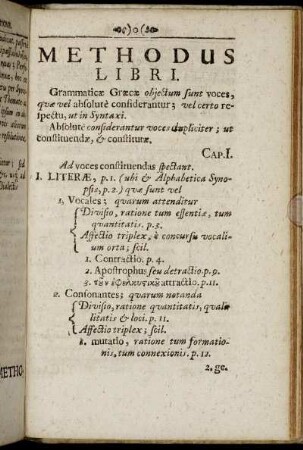 METHODUS
LIBRI.
Grammaticæ Græcæ objectum sunt voces,
quæ vel absolutè considerantur; vel certo re-
spectu, ut in Syntaxi.
Absolutè considerantur voces dupliciter; ut
constituendæ, & constitutæ.
CAP.I.
Ad voces constituendas spectant.
I. LITERÆ, p.1. (ubi & Alphabetica Syno-
psis, p.2.) quæ sunt vel
1. Vocales; quarum attenditur
Divisio, ratione tum essentiæ, tum
quantitatis. p.3.
Affectio triplex, è concursu vocali-
um orta; scil.
1. Contractio. p.4.
2. Apostrophus seu detractio. p.9.
3. τοῦ ν ἐφελκυστικοῦ attractio. p.11.
2. Consonantes; quarum notanda
Divisio, ratione quantitatis, quali-
litatis & loci. p.11.
Affectio triplex; scil.
1. mutatio, ratione tum formatio-
nis, tum connexionis. p.12.
2. ge.